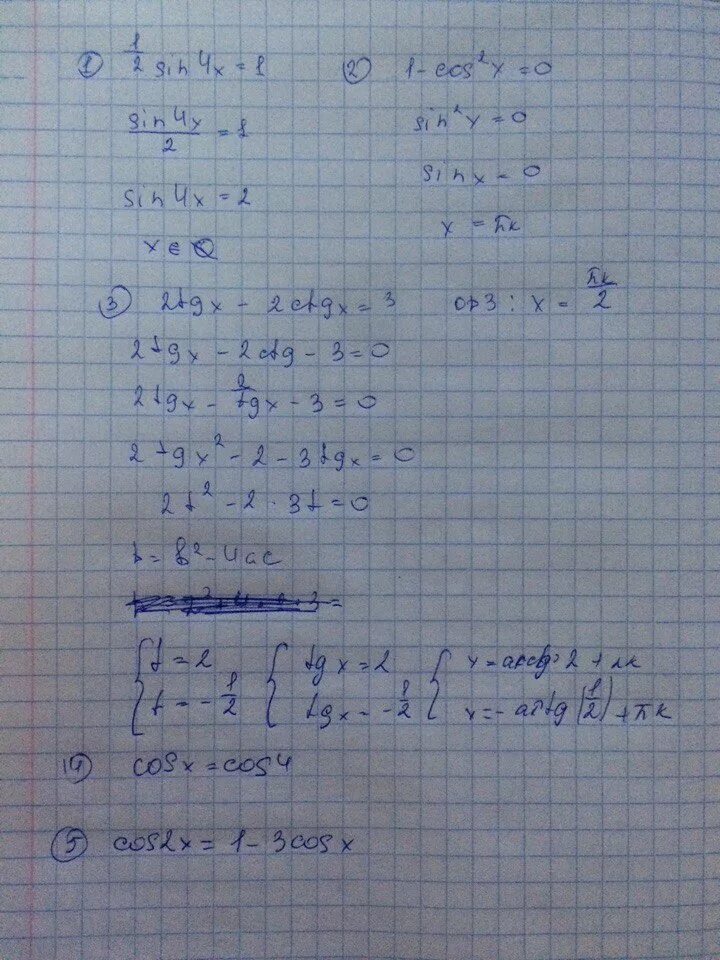 ① 1/2 sin4x = 1
sin4x/2 = 1
sin4x = 2
x ∈ ∅
② 1 - cos²x = 0
sin²x = 0
sinx = 0
x = πk
③ 2tgx - 2ctgx = 3 одз: x = πk/2
2tgx - 2ctg - 3 = 0
2tgx - 2/tgx - 3 = 0
2tgx² - 2 - 3tgx = 0
2t² - 2 · 3t = 0
b² - 4ac
t = 2 tgx = 2 x = arctg 2 + πk
t = -1/2 tgx = -1/2 x = - arctg(1/2) + πk
④ cosx = cos4
⑤ cos2x = 1 - 3cosx